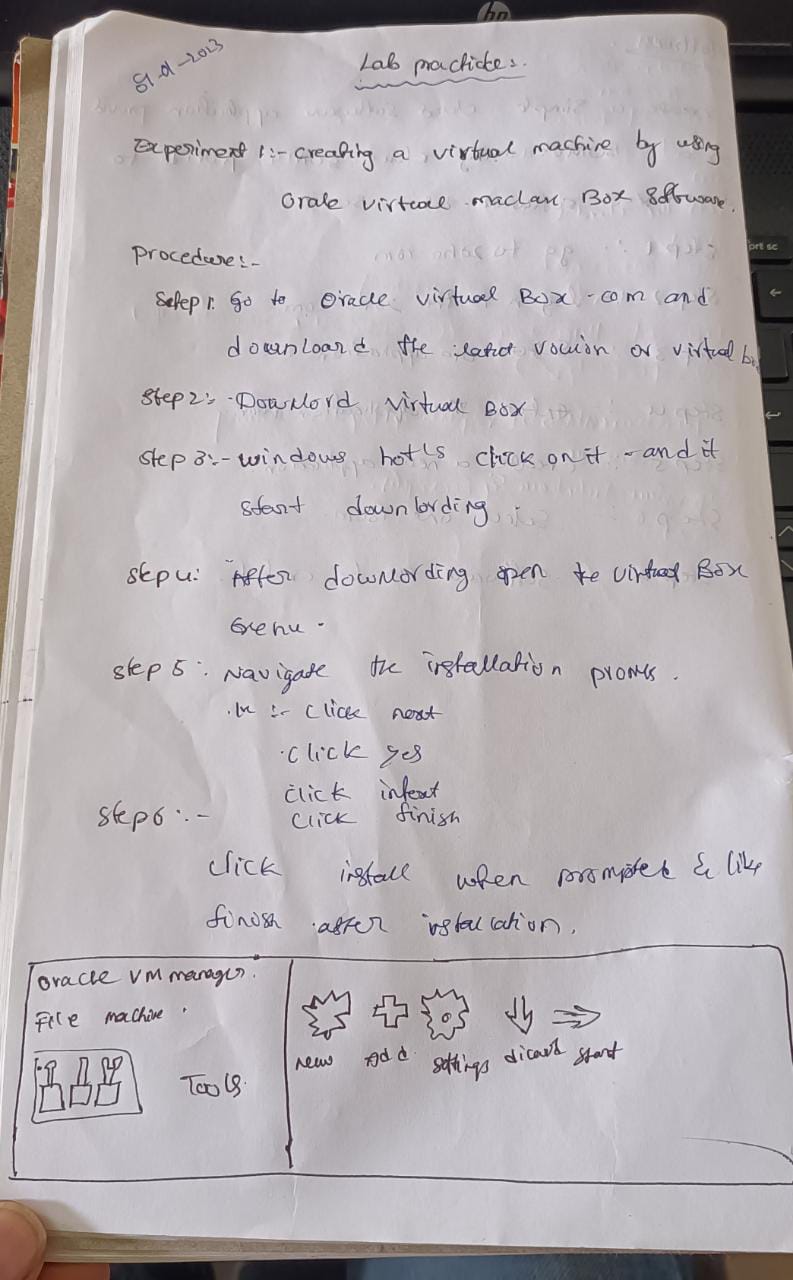 hp
-2023
Lab practicles.
Experiment 1:- creating a virtual machine by using
Orale virtual maclan Box Software.
procedure:-
Setep 1: Go to oracle virtual Box - com and
downloard the latest version or virtual
Step 2:- Downlord virtual Box
Step 3:- windows hots click on it - and it
start downlording.
Step 4: After downlording open the virtual Box
Step 5:- Navigate the installation
click next
click yes
click
Step 6:- click finish
click install when prompted & like
finish after installation.
ort sc
oracle VM manager.
File machine.
Tools.
new Add settings start